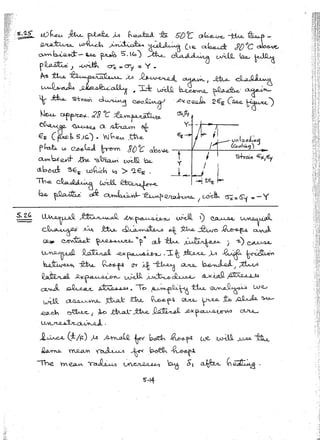 5.25 When the plate is heated to 50°C above the temp-
erature which initiates yielding (ie about 80°C above
ambient - see prob 5.16) the cladding will be fully
plastic, with σx = σy = Y.
As the temperature is lowered again, the cladding
unloads elastically. It will become plastic again
if the strain during cooling exceeds 2εE (see figure)
Now approx. 28°C temperature
change causes a strain of
εE (prob 5.16). When the
plate is cooled from 80°C above
ambient the strain will be
about 3εE which is > 2εE.
The cladding will therefore
be plastic at ambient temperature, with σx=σy = -Y
Y
εE
unloading
(cooling)
Strain εx, εy
Y
2εE
5.26 Unequal thermal expansions will 1) cause unequal
changes in the diameters of the two hoops and
a contact pressure "p" at the interface; 2) cause
unequal lateral expansion. If there is high friction
between the hoops or if they are bonded, this
lateral expansion will introduce axial stresses
and shear stresses. To simplify the analysis we
will assume that the hoops are free to slide over
each other, so that the lateral expansions are
unrestrained.
Since (t/R) is small for both hoops we will use the
same mean radius for both hoops
The mean radius increases by δ1 after heating.
5-14